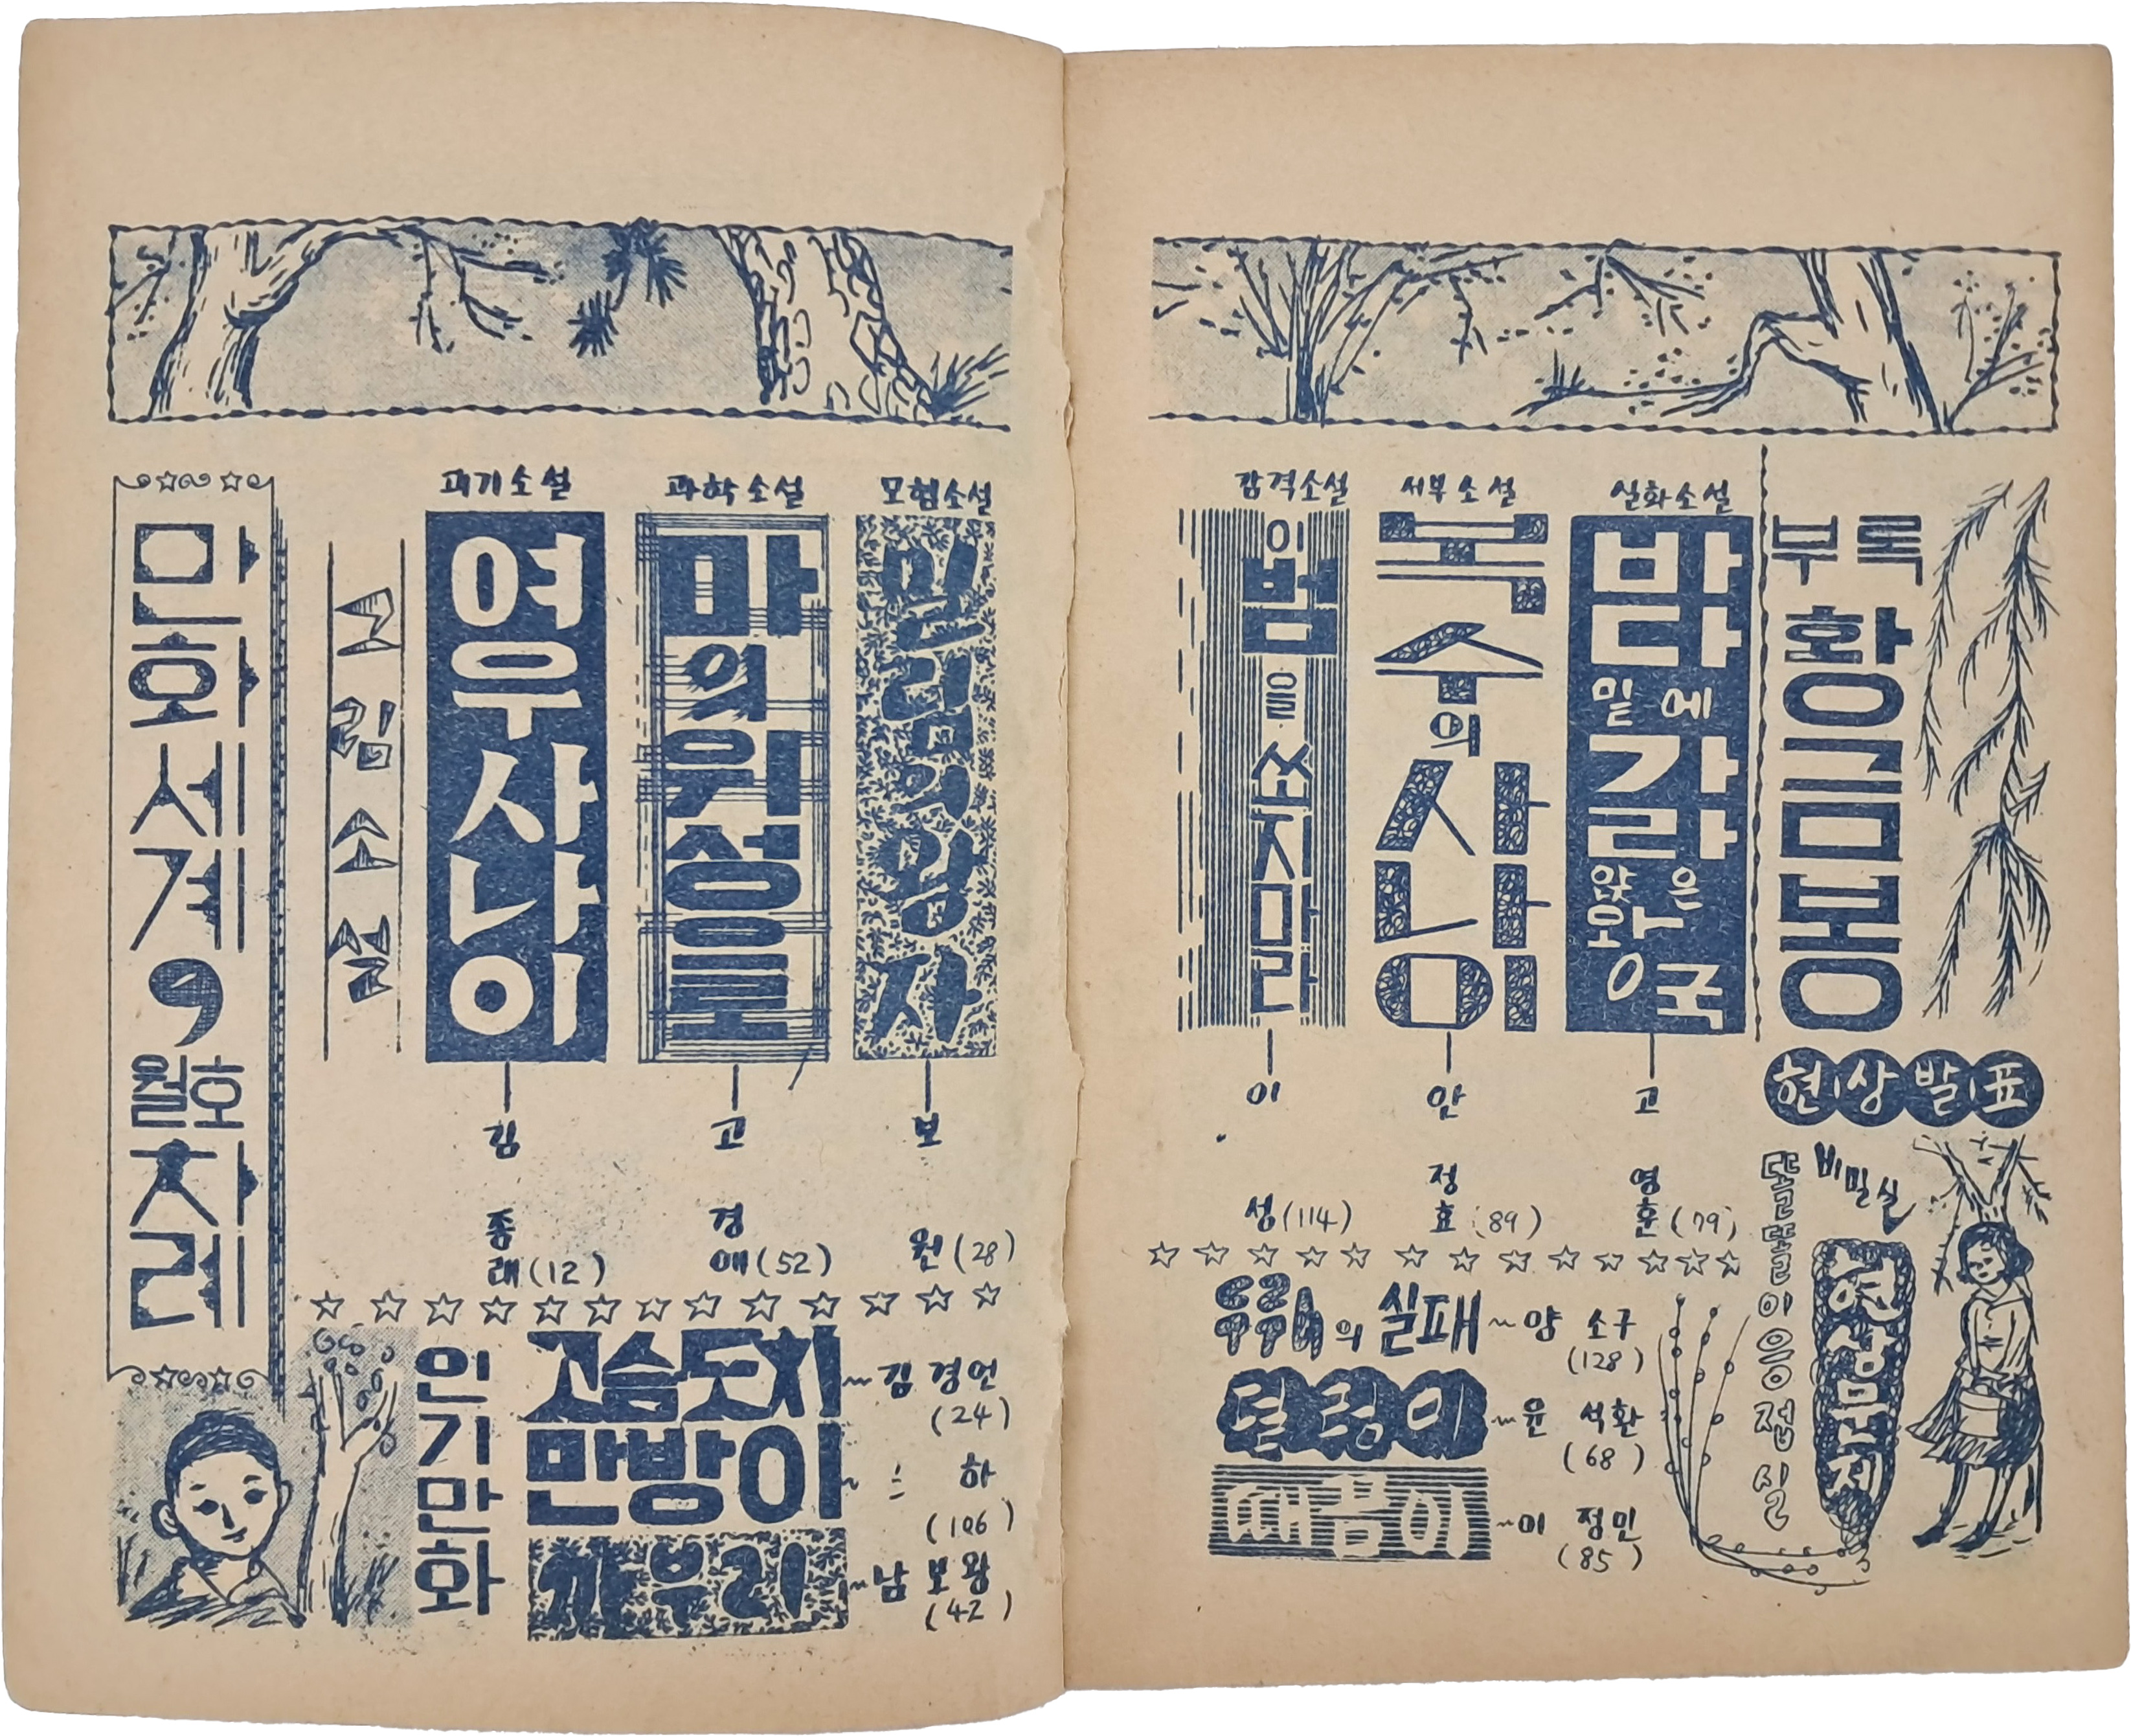 만화세계
9
월호
차례
그림소설
괴기소설
여우사나이
김종래(12)
과학소설
마의위성으로
고경애(52)
모험소설
밀림의왕자
보원(28)
인기만화
고슴도치~김경언
(24)
만방이~
하
(106)
가우리~남보왕
(42)
감격소설
이범을쏘지마라
이성(114)
서부소설
복수의사나이
안정효(89)
실화소설
바다밑에가라앉은왕국
고영훈(79)
부록
황금봉
현상발표
의 실패~양 소구
(128)
덜렁이~윤 석환
(68)
땜이~이 정민
(85)
똘똘이응접실
비밀실
현상문제